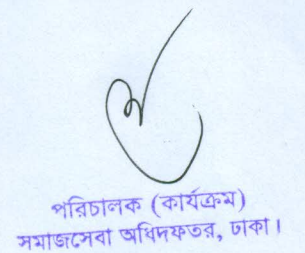 পরিচালক (কার্যক্রম)
সমাজসেবা অধিদফতর, ঢাকা।